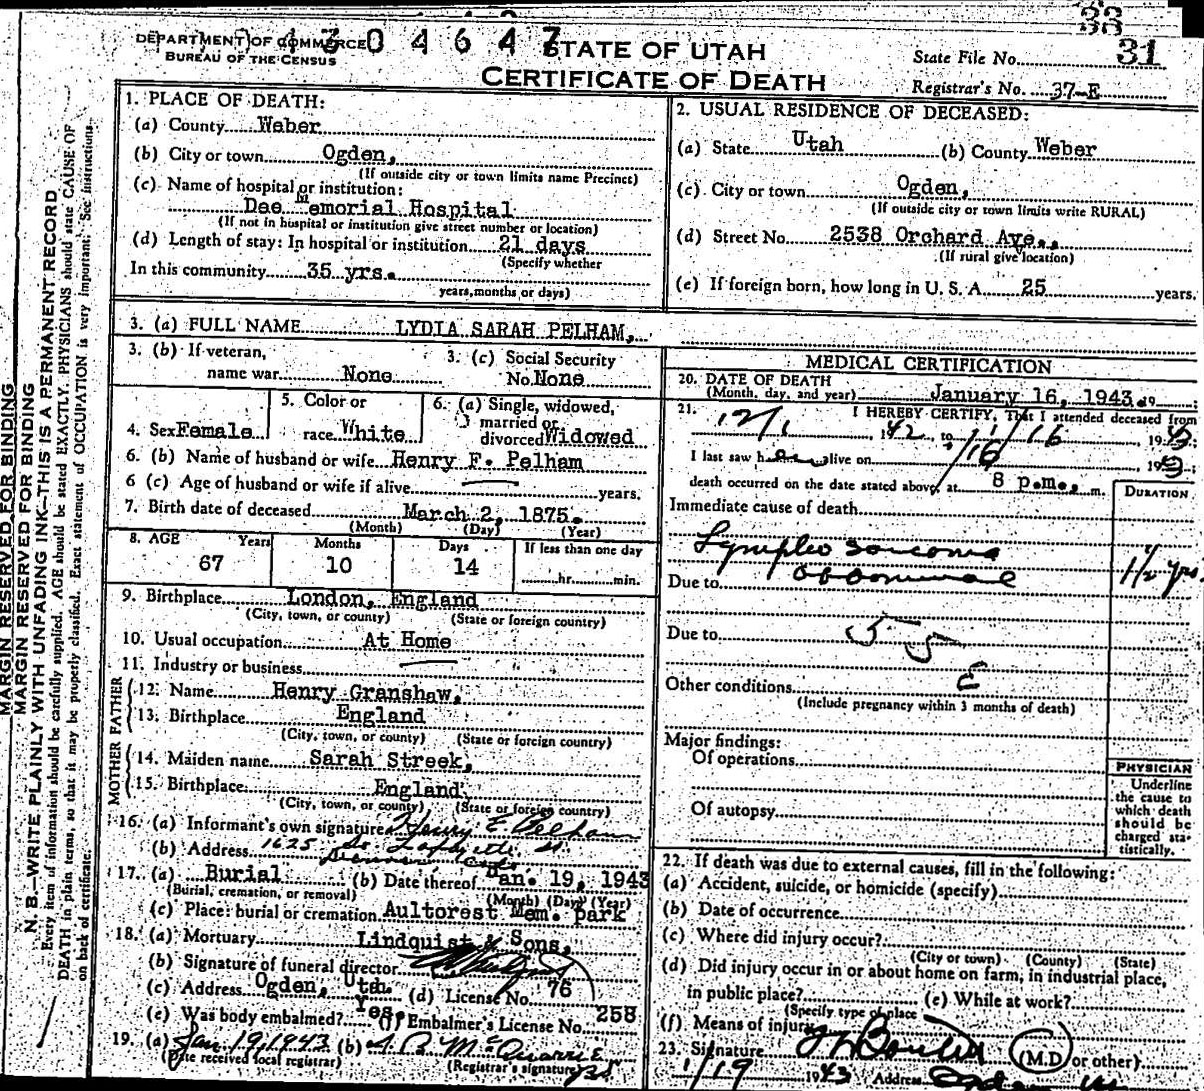 33
33
DEPARTMENT OF COMMERCE
BUREAU OF THE CENSUS
1304647
STATE OF UTAH
CERTIFICATE OF DEATH
State File No. 31
Registrar's No. 37-E
MARGIN RESERVED FOR BINDING
MARGIN RESERVED FOR BINDING
N. B.—WRITE PLAINLY WITH UNFADING INK—THIS IS A PERMANENT RECORD
Every item of information should be carefully supplied. AGE should be stated EXACTLY. PHYSICIANS should state CAUSE OF
DEATH in plain terms, so that it may be properly classified. Exact statement of OCCUPATION is very important. See instructions
on back of certificate.
1. PLACE OF DEATH:
(a) County Weber
(b) City or town Ogden,
(If outside city or town limits name Precinct)
(c) Name of hospital or institution:
Dee Memorial Hospital
(If not in hospital or institution give street number or location)
(d) Length of stay: In hospital or institution 21 days
(Specify whether
In this community 35 yrs.
years, months or days)
2. USUAL RESIDENCE OF DECEASED:
(a) State Utah (b) County Weber
(c) City or town Ogden,
(If outside city or town limits write RURAL)
(d) Street No. 2538 Orchard Ave.,
(If rural give location)
(e) If foreign born, how long in U. S. A. 25 years.
3. (a) FULL NAME LYDIA SARAH PELHAM,
3. (b) If veteran,
name war None
3. (c) Social Security
No. None
4. Sex Female
5. Color or
race White
6. (a) Single, widowed,
married or
divorced Widowed
6. (b) Name of husband or wife Henry F. Pelham
6 (c) Age of husband or wife if alive years.
7. Birth date of deceased March 2, 1875.
(Month) (Day) (Year)
8. AGE Years Months Days If less than one day
67 10 14 hr. min.
9. Birthplace London, England
(City, town, or county) (State or foreign country)
10. Usual occupation At Home
11. Industry or business
FATHER
12. Name Henry Granshaw,
13. Birthplace England
(City, town, or county) (State or foreign country)
MOTHER
14. Maiden name Sarah Streek,
15. Birthplace England
(City, town, or county) (State or foreign country)
16. (a) Informant's own signature Henry E Pelham
(b) Address 1625 So. Lafayette St.
Denver Colo
17. (a) Burial (b) Date thereof Jan. 19, 1943
(Burial, cremation, or removal) (Month) (Day) (Year)
(c) Place: burial or cremation Aultorest Mem. park
18. (a) Mortuary Lindquist & Sons,
(b) Signature of funeral director
(c) Address Ogden, Utah. (d) License No. 76
(e) Was body embalmed? Yes. (f) Embalmer's License No. 258
19. (a) Jan 19, 1943 (b)
(Date received local registrar) (Registrar's signature)
MEDICAL CERTIFICATION
20. DATE OF DEATH
(Month, day, and year) January 16, 1943. 19
21. I HEREBY CERTIFY, That I attended deceased from
12/1 1942, to 1/16, 1943.
I last saw her alive on 1/16, 1943
death occurred on the date stated above, at 8 p.m., m.
DURATION
Immediate cause of death
Lympho sarcoma
abdominal
1 1/2 yrs
Due to
Due to
55
E
Other conditions
(Include pregnancy within 3 months of death)
Major findings:
Of operations
Of autopsy
PHYSICIAN
Underline
the cause to
which death
should be
charged sta-
tistically.
22. If death was due to external causes, fill in the following:
(a) Accident, suicide, or homicide (specify)
(b) Date of occurrence
(c) Where did injury occur?
(City or town) (County) (State)
(d) Did injury occur in or about home on farm, in industrial place,
in public place? (e) While at work?
(Specify type of place
(f) Means of injury
23. Signature (M.D. or other)
1/19 1943 Address